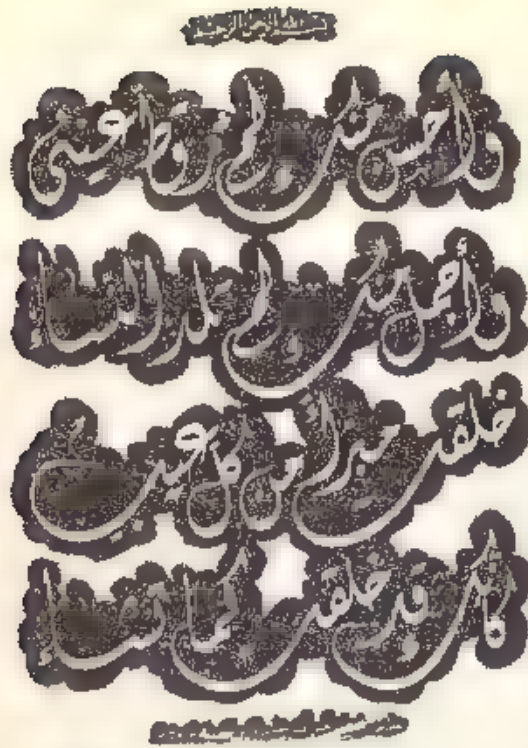 بسم الله الرحمن الرحيم
وأحسن منك لم تر قط عيني
وأجمل منك لم تلد النساء
خلقت مبرأ من كل عيب
كأنك قد خلقت كما تشاء